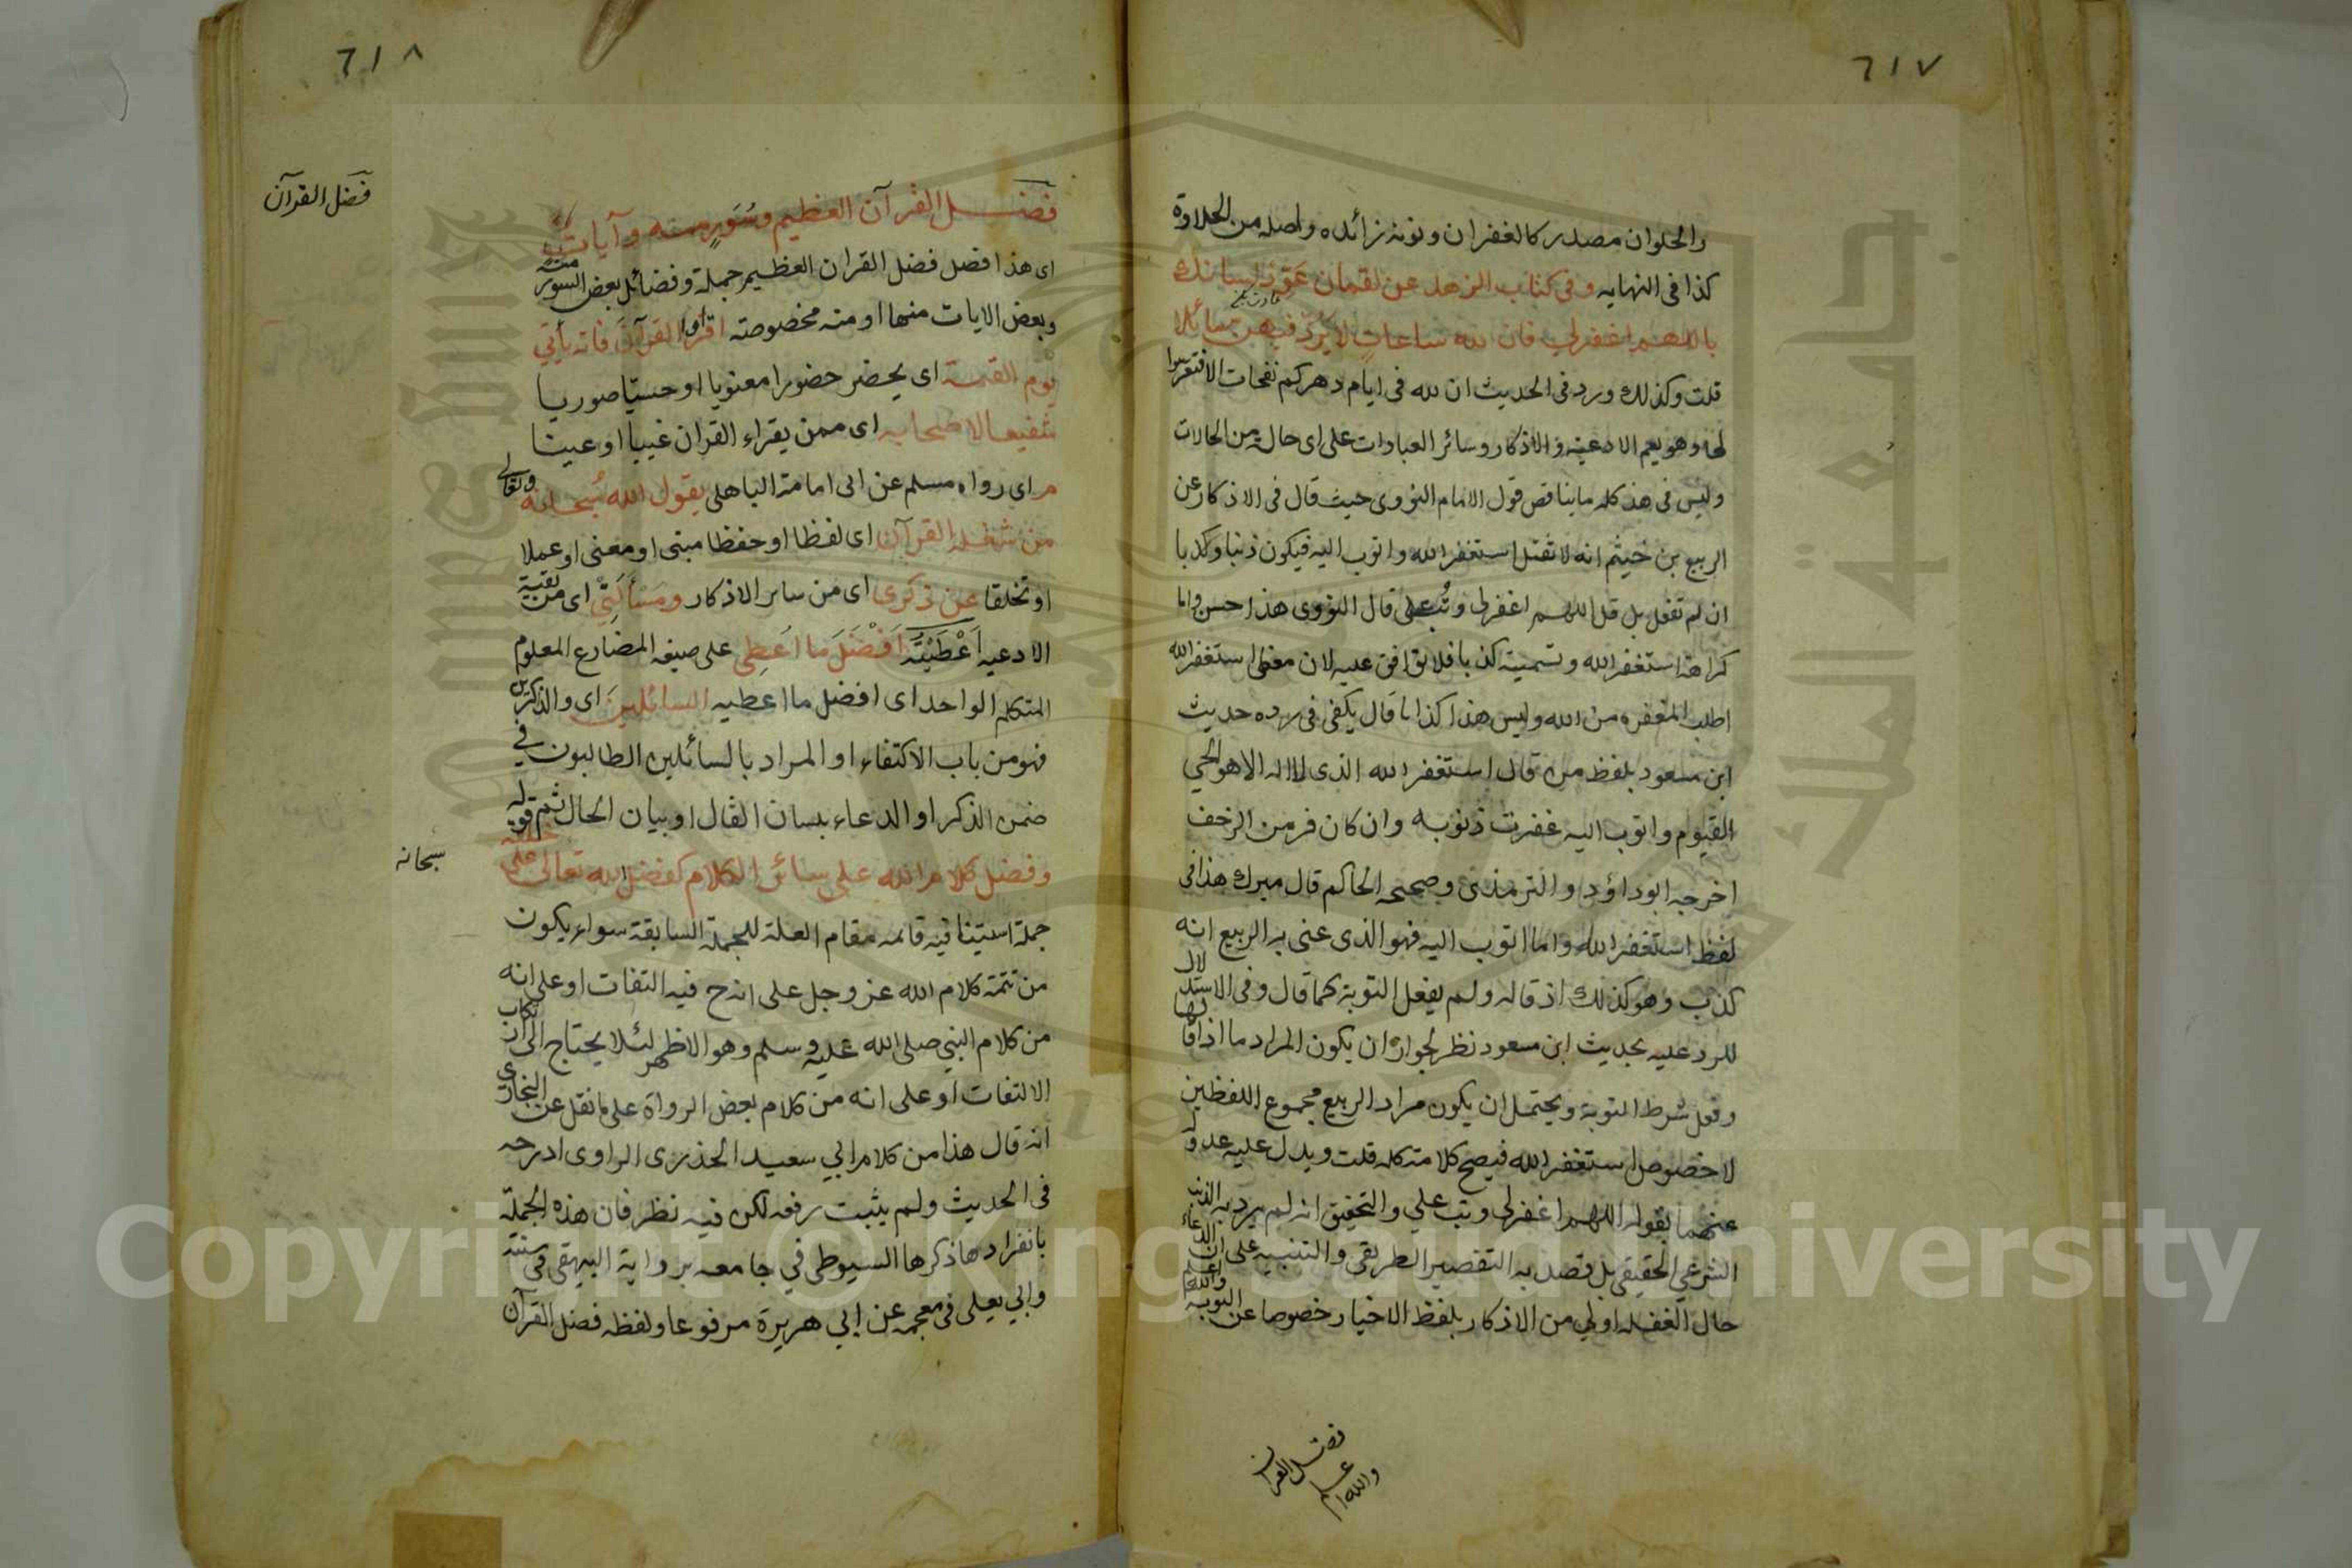 ٦١٧
والحلوان مصدر كالغفران ونونه زائده واصله من الحلاوة
كذا فى النهايه وفى كتاب الزهد عن لقمان عَوِّد لسانك
باللهم اغفرلي فان لله ساعات لا يَرُدّ فيهن سائلا
قلت وكذلك ورد فى الحديث ان لله فى ايام دهركم نفحات الا فتعرضوا
لها وهو يعم الادعيه والاذكار وسائر العبادات على اى حالة من الحالات
وليس فى هذ كله ما يناقض قول الامام النووى حيث قال فى الاذكار عن
الربيع بن خيثم انه لا تقل استغفر الله واتوب اليه فيكون ذنبا وكذبا
ان لم تفعل بل قل اللهم اغفرلى وتُب على قال النووى هذا حسن واما
كراهة استغفر الله وتسميته كذبا فلا نوافق عليه لان معنى استغفر الله
اطلب المغفره من الله وليس هذا كذبا قال يكفى فى رده حديث
ابن مسعود بلفظ من قال استغفر الله الذى لا اله الا هو الحي
القيوم واتوب اليه غفرت ذنوبه وان كان فر من الزحف
اخرجه ابوداؤد والترمذى وصححه الحاكم قال ميرك هذا فى
لفظ استغفر الله واما اتوب اليه فهو الذى عنى به الربيع انه
كذب وهو كذلك اذ قاله ولم يفعل التوبة كما قال وفى الاستدلال
للرد عليه بحديث ابن مسعود نظر لجوازه ان يكون المراد ما اذا قالها
وفعل شرط التوبة ويحتمل ان يكون مراد الربيع مجموع اللفظين
لا خصوص استغفر الله فيصح كلامه كله قلت ويدل عليه عدوله
عنهما بقوله اللهم اغفرلى وتب علي والتحقيق انه لم يرد به الذنب
الشرعي الحقيقى بل قصد به التقصير الطريقى والتنبيه على ان الدعاء
حال الغفله اولي من الاذكار بلفظ الاخبار خصوصا عن التوبة والله اعلم
فضل القران
والله اعلم
٦١٨
فضل القرآن
فضل القرآن العظيم وسُوَرٍ منه وآيات
اى هذا فصل فضل القران العظيم جملة وفضائل بعض السور منه
وبعض الايات منها او منه مخصوصته اقرؤا القرآن فانه يأتي
يوم القيمة اى يحضر حضورا معنويا او حسيّا صوريا
شفيعا لاصحابه اى ممن يقراء القران غيبا او عينا
م اى رواه مسلم عن ابى امامة الباهلى يقول الله سُبحانه وتعالى
من شغله القرآن اى لفظا او حفظا مبنى او معنى او عملا
او تخلقا عن ذكرى اى من سائر الاذكار ومَسْأَلَتِي اى من بقية
الادعيه اَعْطَيْتُهُ اَفْضَلَ ما اُعطِى على صيغه المضارع المعلوم
المتكلم الواحد اى افضل ما اعطيه السائلين اى والذاكرين
فهو من باب الاكتفاء او المراد بالسائلين الطالبون فى
ضمن الذكر او الدعاء بلسان القال او بيان الحال ثم قوله
سبحانه
وفضل كلام الله على سائر الكلام كفضل الله تعالى على خلقه
جملة استينافيه قائمه مقام العلة للجملة السابقة سواء يكون
من تتمة كلام الله عز وجل على انه ح فيه التفات او على انه
من كلام النبي صلى الله عليه وسلم وهو الاظهر لئلا يحتاج الى ارتكاب
الالتفات او على انه من كلام بعض الرواة على ما نقل عن البخارى
انه قال هذا من كلام ابي سعيد الخدرى الراوى ادرجه
فى الحديث ولم يثبت رفعه لكن فيه نظر فان هذه الجملة
بانفرادها ذكرها السيوطى في جامعه برواية البيهقى فى سننه
وابي يعلى فى معجمه عن ابي هريرة مرفوعا ولفظه فضل القرآن
Copyright © King Saud University
جامعة الملك سعود